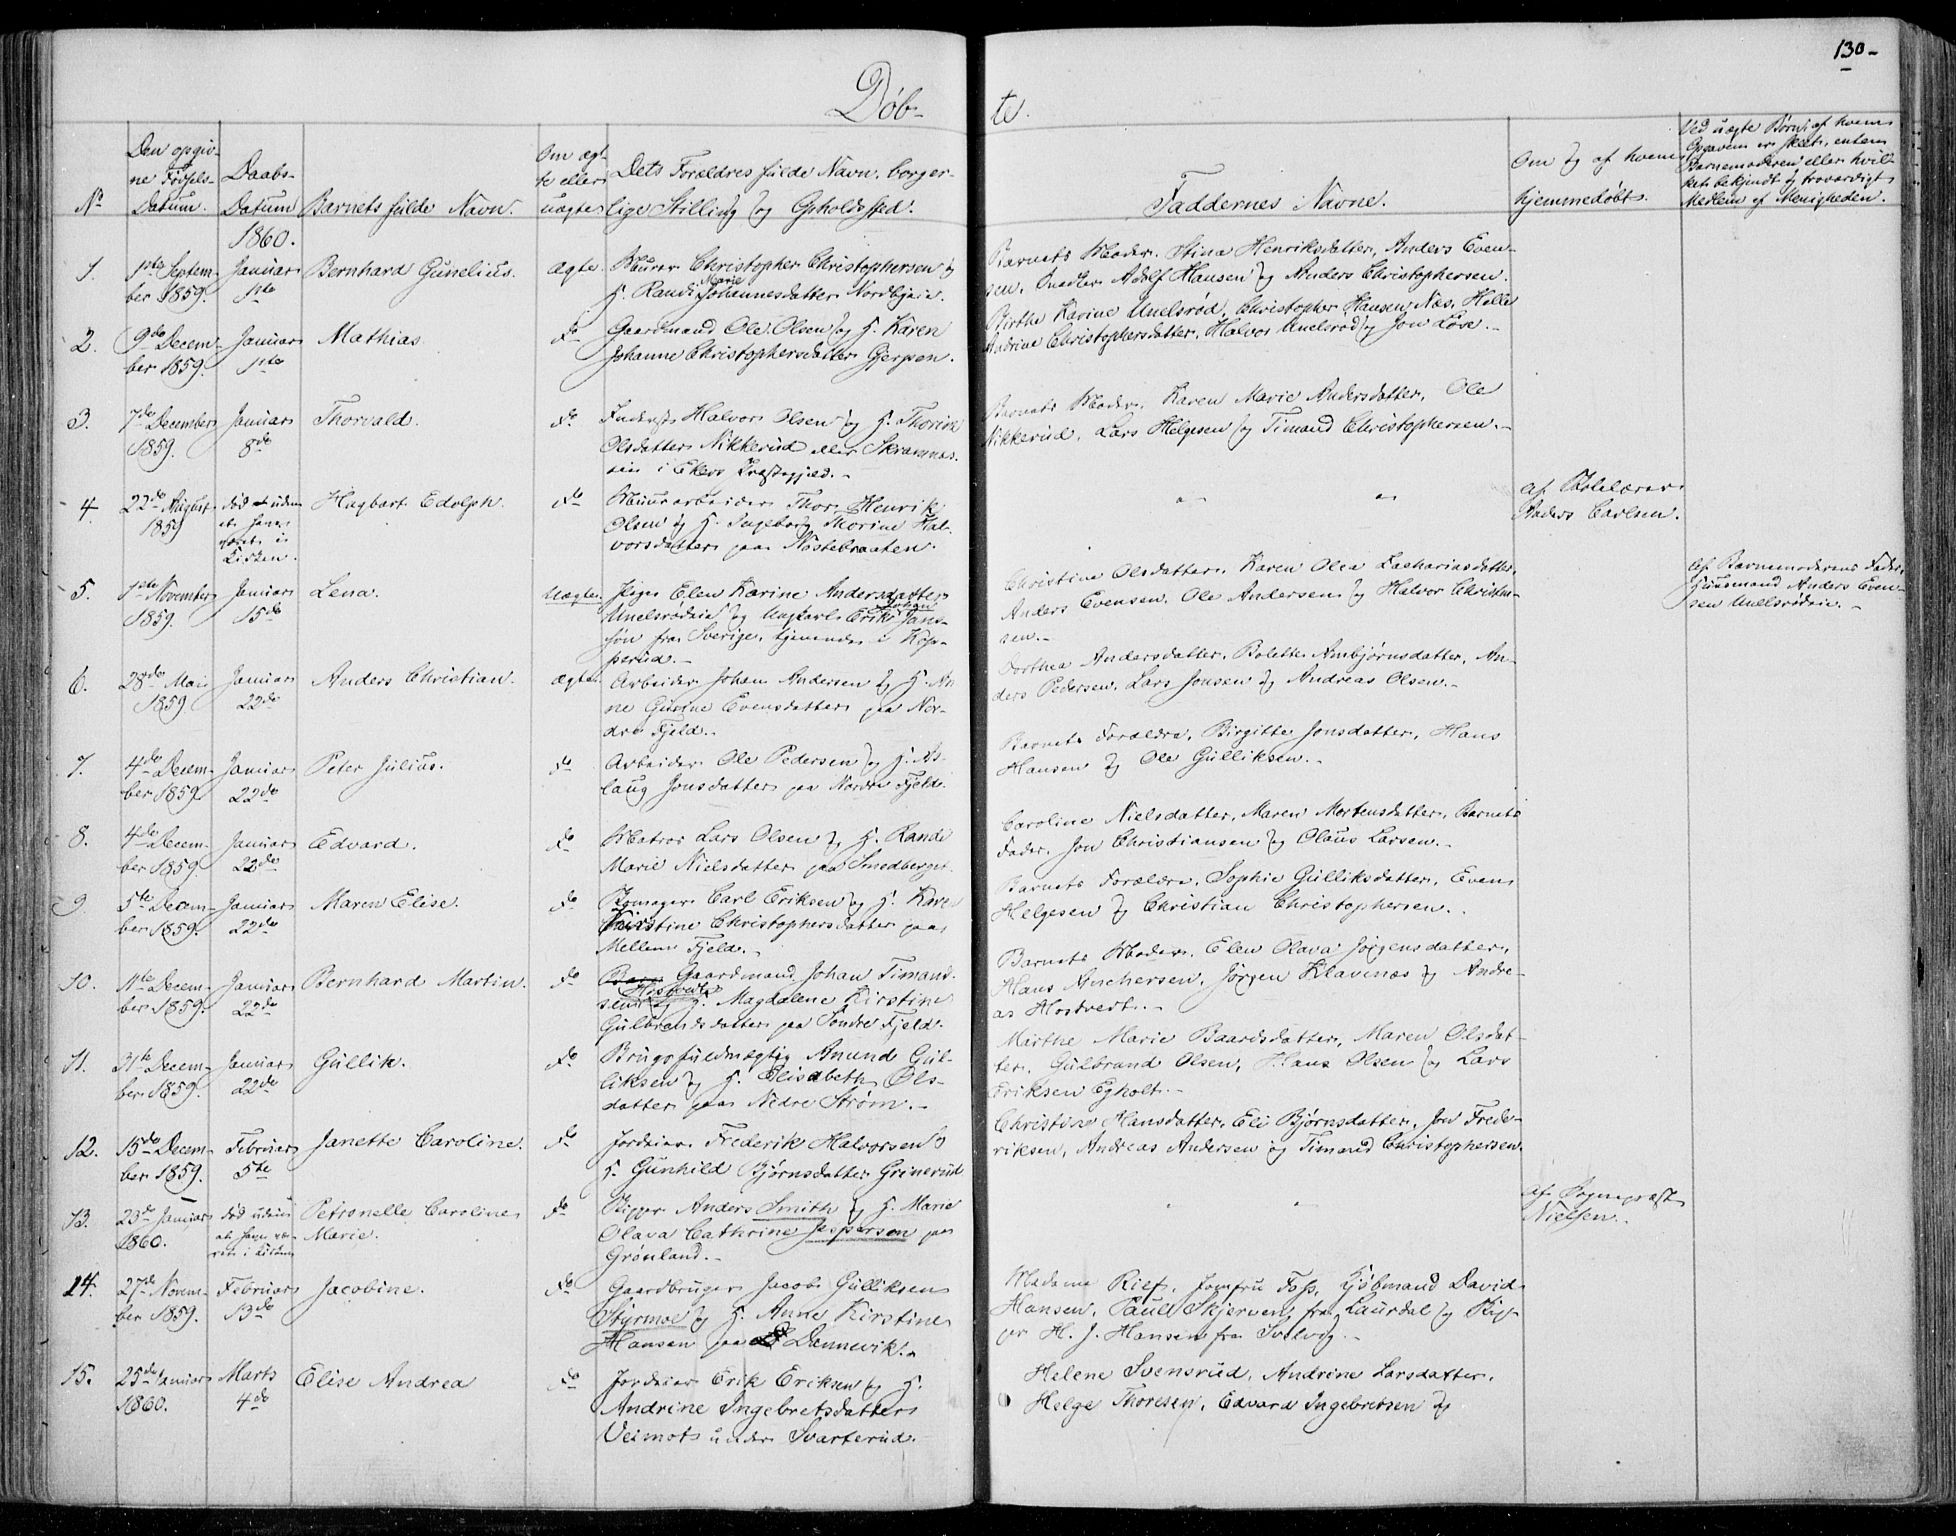 130-
Døb-
te.
No
Den opgiv-
ne Fødsels-
Datum.
Daabs-
Datum
Barnets fulde Navn.
Om æg-
te eller
uægte
Dets Forældres fulde Navn, borger-
lige Stilling og Opholdssted.
Faddernes Navne.
Om og af hvem
hjemmedøbt.
Ved uægte Børn, af hvem
Opgaven er skeet, enten
Barnemoderen eller hvil-
ket bekjendt og troværdigt
Medlem af Menigheden.
1860.
1.
1ste Septem-
ber 1859.
Januar
1ste
Bernhard Gunelius.
Ægte.
Murer Christopher Christophersen og
H. Randi Marie Johannesdatter Nordbyeie.
Barnets Moder, Stina Henriksdatter, Anders Even-
sen, Adolf Hansen og Anders Christophersen.
2.
9de Decem-
ber 1859.
Januar
1ste
Mathias
do
Gaardmand Ole Olsen og H. Karen
Johanne Christophersdatter Gjerpen.
Birthe Karine Unelsrød, Christopher Hansen Næs, Helle
Andrine Christophersdatter, Halvor Unelsrød og Jon
3.
7de December
1859.
Januar
8de
Thorvald.
do
Inderst Halvor Olsen og H. Thorine
Olsdatter Nikkerud eller
i Ekers Præstegjeld.-
Barnets Moder, Karen Marie Andersdatter, Ole
Nikkerud, Lars Helgesen og Timand Christophersen.-
4.
22de August
1859
død uden
at have
været i
Kirken.
Hagbart Edolph.
do
Muurarbeider Thor Henrik
Olsen og H. Ingeborg Thorine Hal-
vorsdatter paa Nøstebraaten.
af Skolelærer
Anders Carlsen.
5.
1ste November
1859.
Januar
15de
Lena.
Uægte.
Pige Elen Karine Andersdatter
Unelsrødeie og Ungkarl Erik Johan Jans-
søn fra Sverige, tjenende i Kop-
perud.-
Christine Olsdatter, Karen Olea Zachariasdatter,
Anders Evensen, Ole Andersen og Halvor Christen-
sen.-
af Barnemoderens Fader,
Huusmand Anders Even-
sen Unelsrødeie.-
6.
28de Mai
1859
Januar
22de
Anders Christian.
Ægte
Arbeider Johan Andersen og H. An-
ne Gurine Evensdatter paa Nor-
dre Fjeld.-
Dorthea Andersdatter, Bolette Ambjørnsdatter, An-
ders Pedersen, Lars Jonsen og Andreas Olsen.-
7.
4de Decem-
ber 1859
Januar
22de
Peter Julius.
do
Arbeider Ole Pedersen og H. As-
laug Jonsdatter paa Nordre Fjeld.
Barnets Forældre, Birgitte Jonsdatter, Hans
Hansen og Ole Gulliksen.-
8.
4de Decem-
ber 1859
Januar
22de
Edvard.
do
Matros Lars Olsen og H. Rande
Marie Nielsdatter paa Smedberget.
Caroline Nielsdatter, Maren Mortensdatter, Barnets
Fader, Jon Christiansen og Olaus Larsen.-
9.
5te Decem-
ber 1859.
Januar
22de
Maren Elise.
do
Skomager Carl Eriksen og H. Karen
Kirstine Christophersdatter paa
Mellem Fjeld.-
Barnets Forældre, Sophie Gulliksdatter, Even
Helgesen og Christian Christophersen.
10.
11te Decem-
ber 1859.
Januar
22de
Bernhard Martin.
do
Gaardmand Johan Timand-
sen Hostvedt og H. Magdalene Kirstine
Gulbrandsdatter paa Søndre Fjeld.
Barnets Moder, Elen Olava Jørgensdatter,
Hans Anchersen, Jørgen Klavenæs og Andre-
as Hostvedt.-
11.
31te Decem-
ber 1859.
Januar
22de
Gullik.
do
Brugsfuldmægtig Anund Gul-
liksen og H. Elisabeth Ols-
datter paa Nedre Strøm.-
Mirthe Marie Baardsdatter, Maren Olsdat-
ter, Gulbrand Olsen, Hans Olsen og Lars
Eriksen Egholt.-
12.
15de Decem-
ber 1859.
Februar
5te
Janette Caroline.
do
Jordeier Frederik Halvorsen og
H. Gunhild Bjørnsdatter Grinerud
Christine Hansdatter, Eli Bjørnsdatter, Jon Frede-
riksen, Andreas Andersen og Timand Christophersen.
13.
23de Januar
1860.
død uden
at have væ-
ret i Kirken
Petronelle Caroline
Marie.
do
Skipper Anders Smith og H. Marie
Olava Cathrine Jespersen paa
Grønland.-
af Sognepræst
Nielsen.
14.
27de Novem-
ber 1859.
Februar
13de
Jacobine.
do
Gaardbruger Jacob Gulliksen
Styrmoe og H. Anne Kirstine
Hansen paa Dannevik.
Madame Rief, Jomfru Foss, Kjøbmand David
Hansen, Paul Skjerven fra Laurdal og Skip-
per H. J. Hansen fra Svelvig.-
15.
25de Januar
1860.
Marts
4de
Elise Andrea
do
Jordeier Erik Eriksen og H.
Andrine Ingebretsdatter
Veimot under Svarterud.
Helene Svensrud, Andrine Larsdatter,
Helge Thoresen, Edvard Ingebretsen og